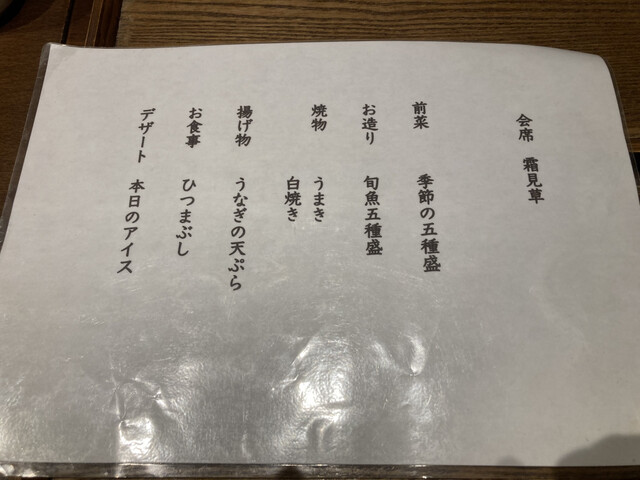 会席 霜見草
前菜 季節の五種盛
お造り 旬魚五種盛
焼物 うまき
白焼き
揚げ物 うなぎの天ぷら
お食事 ひつまぶし
デザート 本日のアイス